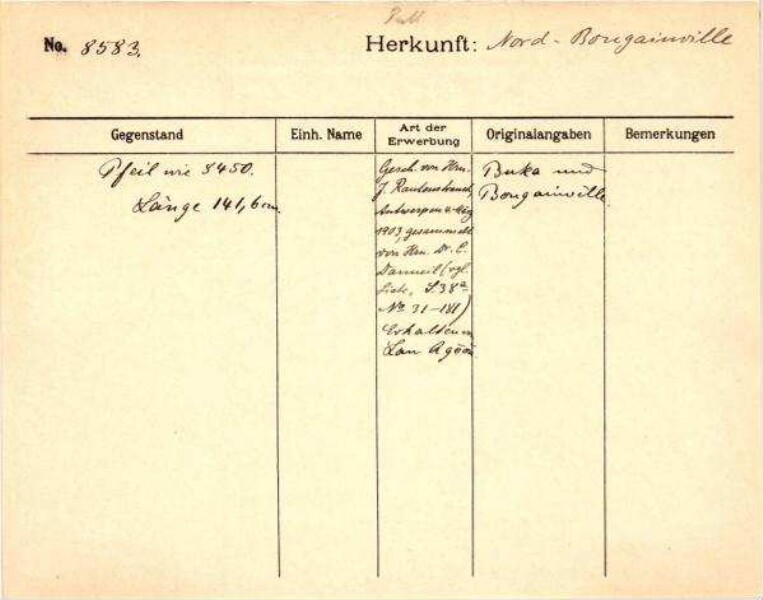 No. 8583.
Herkunft: Nord-Bougainville
Gegenstand
Einh. Name
Art der
Erwerbung
Originalangaben
Bemerkungen
Pfeil wie 8450.
Länge 141,6 cm.
Gesch. von Hrn.
J. Rautenstrauch,
Antwerpen
1903, gesammelt
von Hrn. Dr. C.
Danneil (vgl.
Liste, S. 38a
No 31-181)
Erhalten
Buka und
Bougainville.